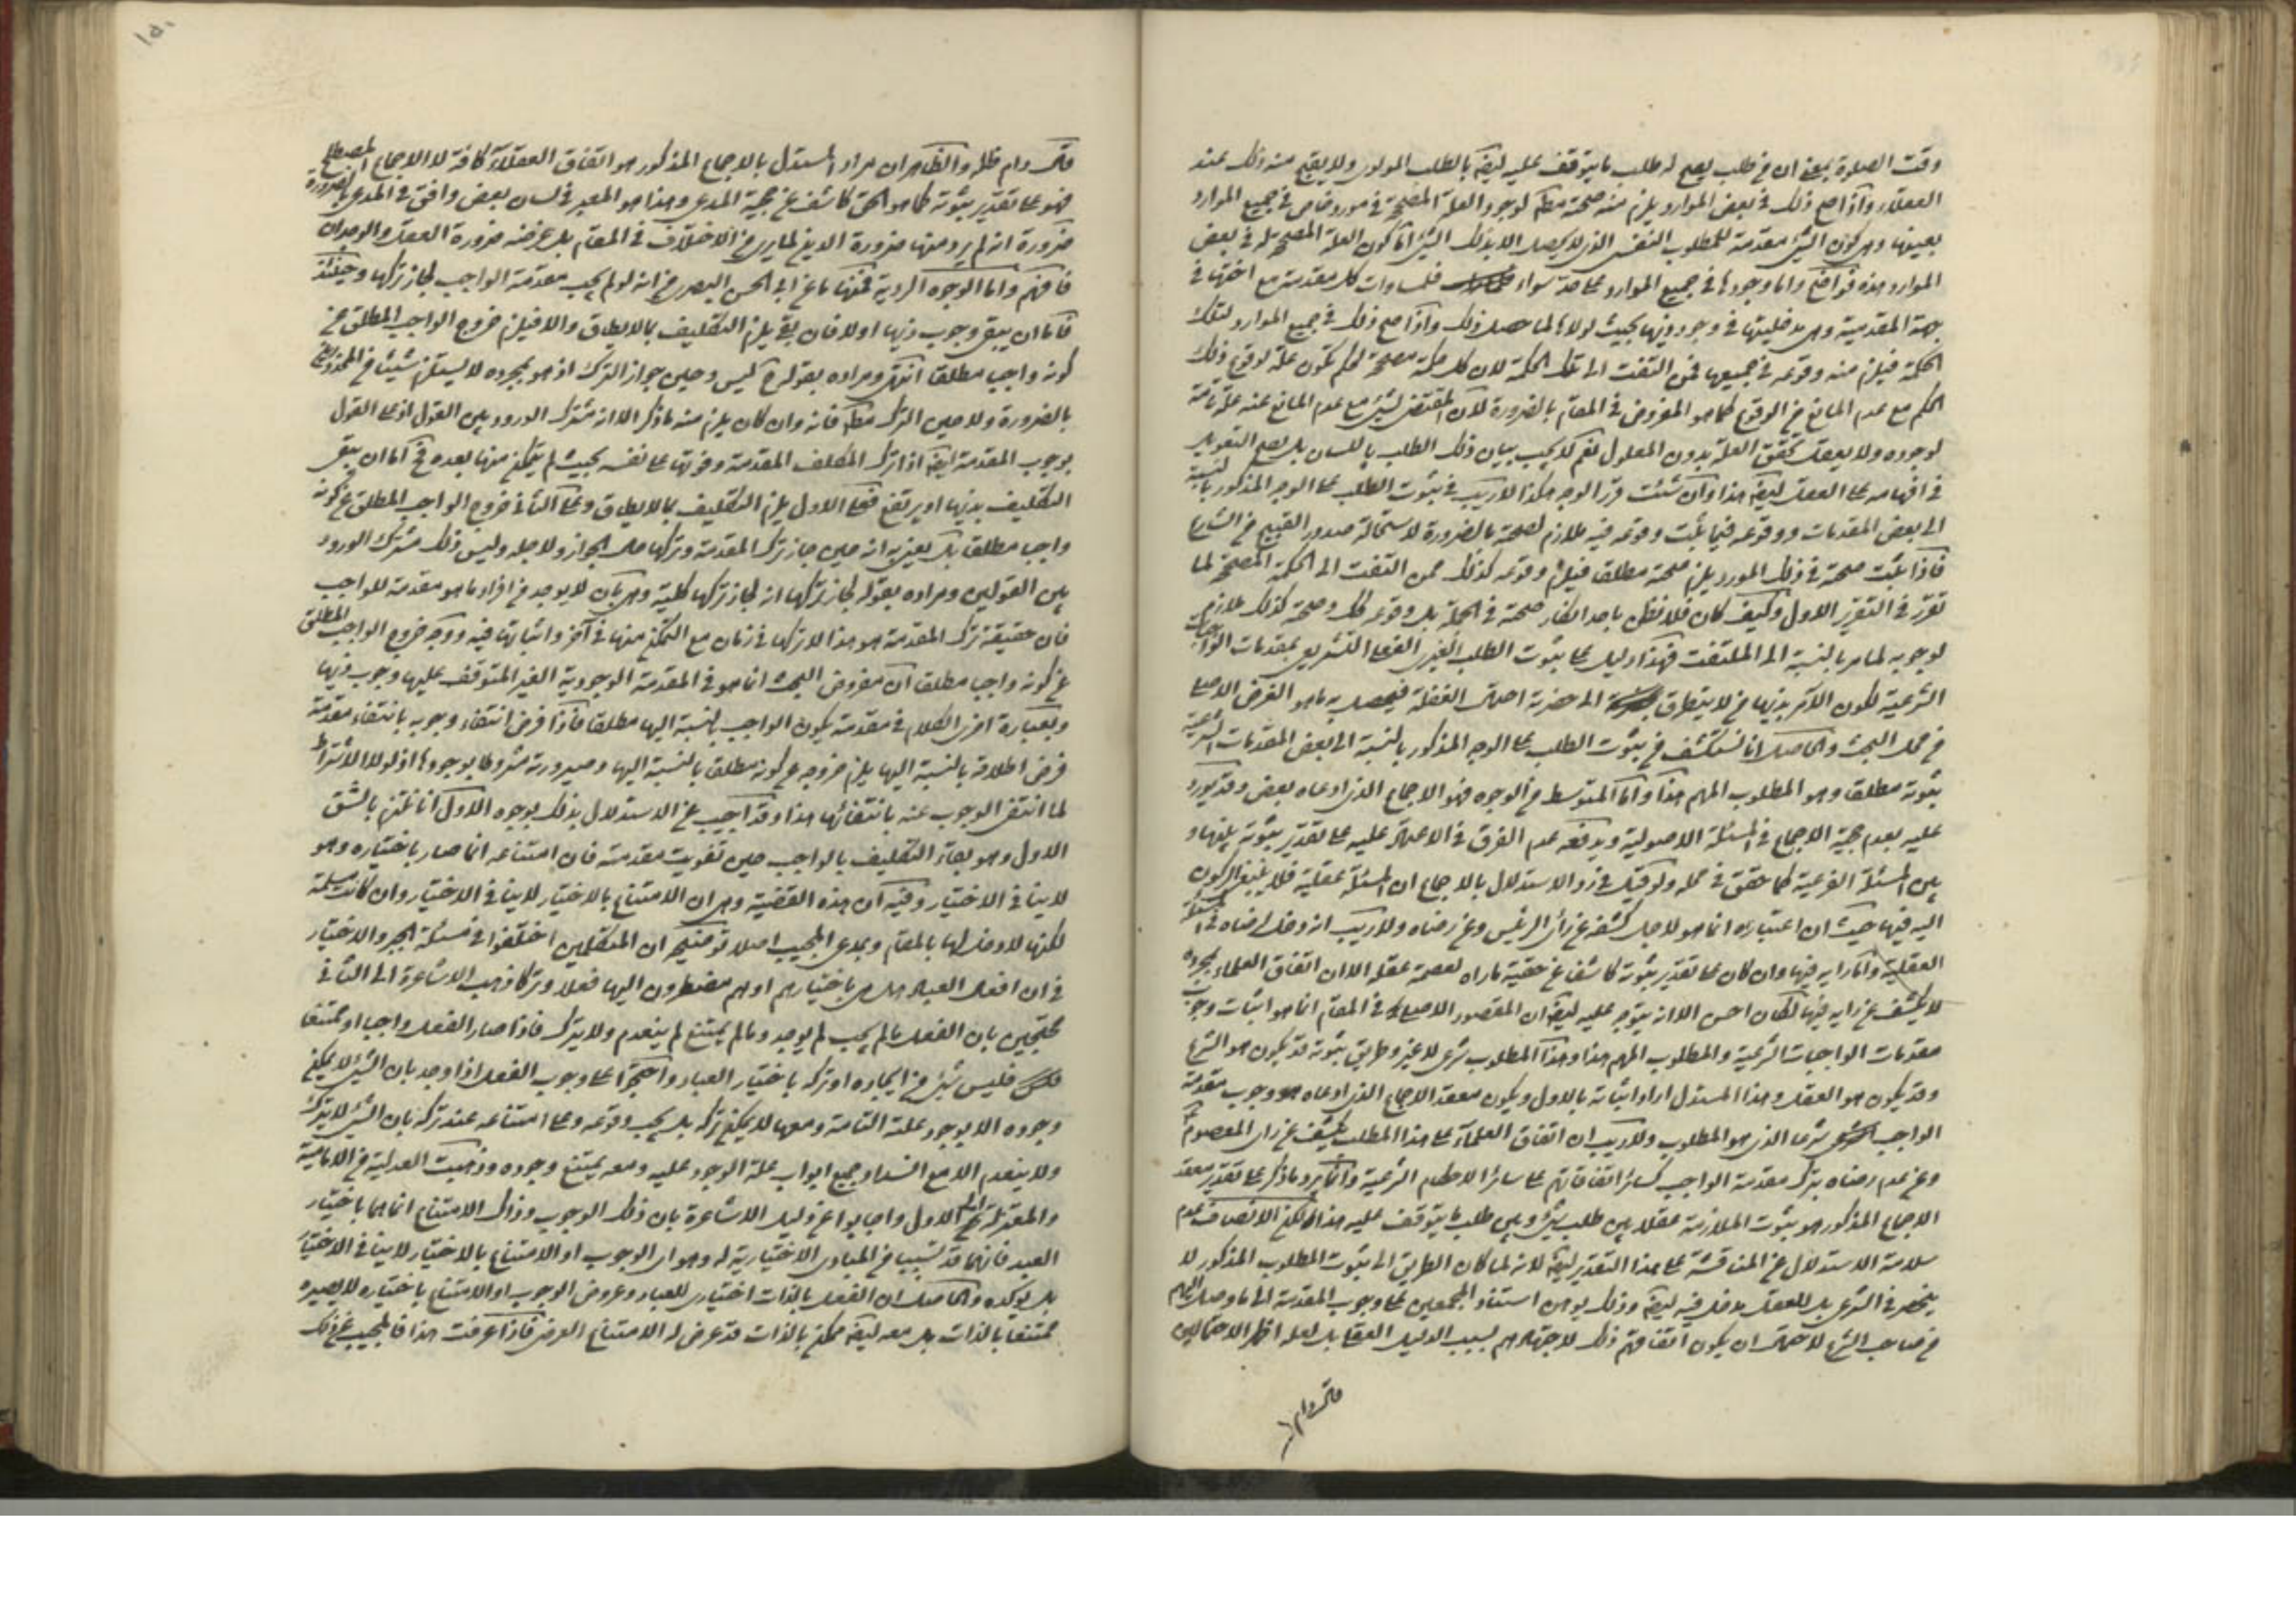 وقت الصلوة بمعنى ان من طلب يصح له طلب ما يتوقف عليه ايضا بالطلب المولوي ولا يقبح منه ذلك عند
العقلاء واذا صح ذلك في بعض الموارد يلزم منه صحته مطلقا لوجود العلة المصححة في مورد خاص في جميع الموارد
بعينها وهي كون الشيء مقدمة للمطلوب النفسي الذي لا يحصل الا بذلك الشيء اما كون العلة المصححة له في بعض
الموارد هذه فواضح واما وجودها في جميع الموارد على حد سواء فلمساوات كل مقدمة مع اختها في
جهة المقدمية وهي مدخليتها في وجود ذيها بحيث لولاها لما حصل ذلك واذا صح ذلك في جميع الموارد لتلك
الحكمة فيلزم منه وقوعه في جميعها ممن التفت الى تلك الحكمة لان كل حكمة مصححة لحكم تكون علة لوقوع ذلك
الحكم مع عدم المانع من الوقوع كما هو المفروض في المقام بالضرورة لان المقتضي لشيء مع عدم المانع عنه علة تامة
لوجوده ولا يعقل تحقق العلة بدون المعلول نعم لا يجب بيان ذلك الطلب باللسان بل يصح التعويل
في افهامه على العقل ايضا هذا وان شئت قرر الوجه هكذا لا ريب في ثبوت الطلب على الوجه المذكور بالنسبة
الى بعض المقدمات ووقوعه فيما ثبت وقوعه فيه ملازم لصحته بالضرورة لاستحالة صدور القبيح من الشارع
فاذا ثبت صحته في ذلك المورد يلزم صحته مطلقا فيلزم وقوعه كذلك ممن التفت الى الحكمة المصححة لما
تقرر في التقرير الاول وكيف كان فلا نظن باحد انكار صحته في الجملة بل وقوعه كك وصحته كذلك ملازم
لوجوبه لما مر بالنسبة الى الملتفت فهذا دليل على ثبوت الطلب الغيري الفعلي التشريعي بمقدمات الواجبات
الشرعية لكون الآمر بذيها من لا يتطرق الى حضرته احتمال الغفلة فيحصل به ما هو الغرض الاصلي
في محل البحث والحاصل انا نستكشف من ثبوت الطلب على الوجه المذكور بالنسبة الى بعض المقدمات الشرعية
ثبوته مطلقا وهو المطلوب المهم هذا واما المتوسط من الوجوه فهو الاجماع الذي ادعاه بعض وقد يورد
عليه بعدم حجية الاجماع في المسئلة الاصولية ويدفعه عدم الفرق في الاعتماد عليه على تقدير ثبوته بينها و
بين المسئلة الفرعية كما حقق في محله ولو قيل في رد الاستدلال بالاجماع ان المسئلة عقلية فلا ينبغي الركون
اليه فيها حيث ان اعتباره انما هو لاجل كشفه عن رأي الرئيس وعن رضاه ولا ريب انه لا دخل لرضاه في المسئلة
العقلية واما رايه فيها وان كان على تقدير ثبوته كاشفا عن حقية ما راه لعصمة عقله الا ان اتفاق العلماء بمجرده
لا يكشف عن رايه فيها لكان احسن الا انه يتوجه عليه ايضا ان المقصود الاصلي في المقام انما هو اثبات وجوب
مقدمات الواجبات الشرعية والمطلوب المهم هذا وهذا المطلوب شرعي لا غير وطريق ثبوته قد يكون هو الشرع
وقد يكون هو العقل وهذا المستدل اراد اثباته بالاول ويكون معقد الاجماع الذي ادعاه هو وجوب مقدمة
الواجب شرعا الذي هو المطلوب ولا ريب ان اتفاق العلماء على هذا المطلب يكشف عن رأي المعصوم
وعن عدم رضاه بترك مقدمة الواجب كسائر اتفاقاتهم على سائر الاحكام الشرعية وانما يرد ما ذكر على تقدير معقد
الاجماع المذكور هو ثبوت الملازمة عقلا بين طلب شيء وبين طلب ما يتوقف عليه هذا لكن الانصاف عدم
سلامة الاستدلال عن المناقشة على هذا التقدير ايضا لانه لما كان الطريق الى ثبوت المطلوب المذكور لا
ينحصر في الشرع بل للعقل مدخل فيه ايضا وذلك يوهن استناد المجمعين على وجوب المقدمة الى ما وصل اليهم
من صاحب الشرع لاحتمال ان يكون اتفاقهم ذلك لاجتهادهم بسبب الدليل العقلي بل لعله اظهر الاحتمالين
قال دام ظله
١٥٠
قال دام ظله والظاهر ان مراد المستدل بالاجماع المذكور هو اتفاق العقلاء كافة لا الاجماع المصطلح
فهو على تقدير ثبوته كما هو الحق كاشف عن حجية المدعى وهذا هو المعبر في لسان بعض وافق في المدعى بالضرورة
ضرورة انه لم يرد منها ضرورة الدين لما يرى من الاختلاف في المقام بل غرضه ضرورة العقل والوجدان
فافهم واما الوجوه الردية فمنها ما عن ابي الحسن البصري من انه لو لم يجب مقدمة الواجب لجاز تركها وحينئذ
فاما ان يبقى وجوب ذيها او لا فان بقي يلزم التكليف بما لا يطاق والا فيلزم خروج الواجب المطلق عن
كونه واجبا مطلقا انتهى ومراده بقوله ح ليس وحين جواز الترك اذ هو بمجرده لا يستلزم شيئا من المحذورين
بالضرورة ولا حين الترك مطلقا فانه وان كان يلزم منه ما ذكر الا انه مشترك الورود بين القول اذ على القول
بوجوب المقدمة ايضا اذا ترك المكلف المقدمة وفوتها على نفسه بحيث لم يتمكن منها بعده فح اما ان يبقى
التكليف بذيها او يرتفع فعلى الاول يلزم التكليف بما لا يطاق وعلى الثاني خروج الواجب المطلق عن كونه
واجبا مطلقا بل يعني به انه حين جاز ترك المقدمة وتركها على الجواز ولاجله وليس ذلك مشترك الورود
بين القولين ومراده بقوله لجاز تركها انه لجاز تركها كلية وهي بان لا يوجد من افراد ما هو مقدمة للواجب
فان حقيقة ترك المقدمة هو هذا لا تركها في زمان مع التمكن منها في آخر واتيانها فيه ووجه خروج الواجب المطلق
عن كونه واجبا مطلقا ان مفروض البحث انما هو في المقدمة الوجودية الغير المتوقف عليها وجوب ذيها
وبعبارة اخرى الكلام في مقدمة يكون الواجب بالنسبة اليها مطلقا فاذا فرض انتفاء وجوبه بانتفاء مقدمة
فرض اطلاقه بالنسبة اليها يلزم خروجه عن كونه مطلقا بالنسبة اليها وصيرورته مشروطا بوجودها اذ لولا الاشتراط
لما انتفى الوجوب عنه بانتفائها هذا وقد اجيب عن الاستدلال بذلك بوجوه الاول انا نلتزم بالشق
الاول وهو بقاء التكليف بالواجب حين تفويت مقدمته فان امتناعه انما صار باختياره وهو
لا ينافي الاختيار وفيه ان هذه القضية وهي ان الامتناع بالاختيار لا ينافي الاختيار وان كانت مسلمة
لكنها لا دخل لها بالمقام وبمدعى المجيب اصلا توضيحه ان المتكلمين اختلفوا في مسئلة الجبر والاختيار
في ان افعال العباد هل هي باختيارهم او هم مضطرون اليها فعلا وتركا ذهب الاشاعرة الى الثاني
محتجين بان الفعل ما لم يجب لم يوجد وما لم يمتنع لم ينعدم ولا يترك فاذا صار الفعل واجبا او ممتنعا
فليس شيء من ايجاده او تركه باختيار العباد واحتجوا على وجوب الفعل اذا وجد بان الشيء لا يمكن
وجوده الا بوجود علته التامة ومعها لا يمكن تركه بل يجب وقوعه وعلى امتناعه عند تركه بان الشيء لا يترك
ولا ينعدم الا مع انسداد جميع ابواب علة الوجود عليه ومعه يمتنع وجوده وذهبت العدلية من الامامية
والمعتزلة الى الاول واجابوا عن دليل الاشاعرة بان ذلك الوجوب وذاك الامتناع انما هما باختيار
العبد فانهما قد تسببا من المبادي الاختيارية له وهو اي الوجوب او الامتناع بالاختيار لا ينافي الاختيار
بل يؤكده والحاصل ان الفعل بالذات اختياري للعباد وعروض الوجوب او الامتناع باختياره لا يصيره
ممتنعا بالذات بل معه ايضا ممكن بالذات قد عرض له الامتناع العرضي فاذا عرفت هذا فالمجيب عن ذلك